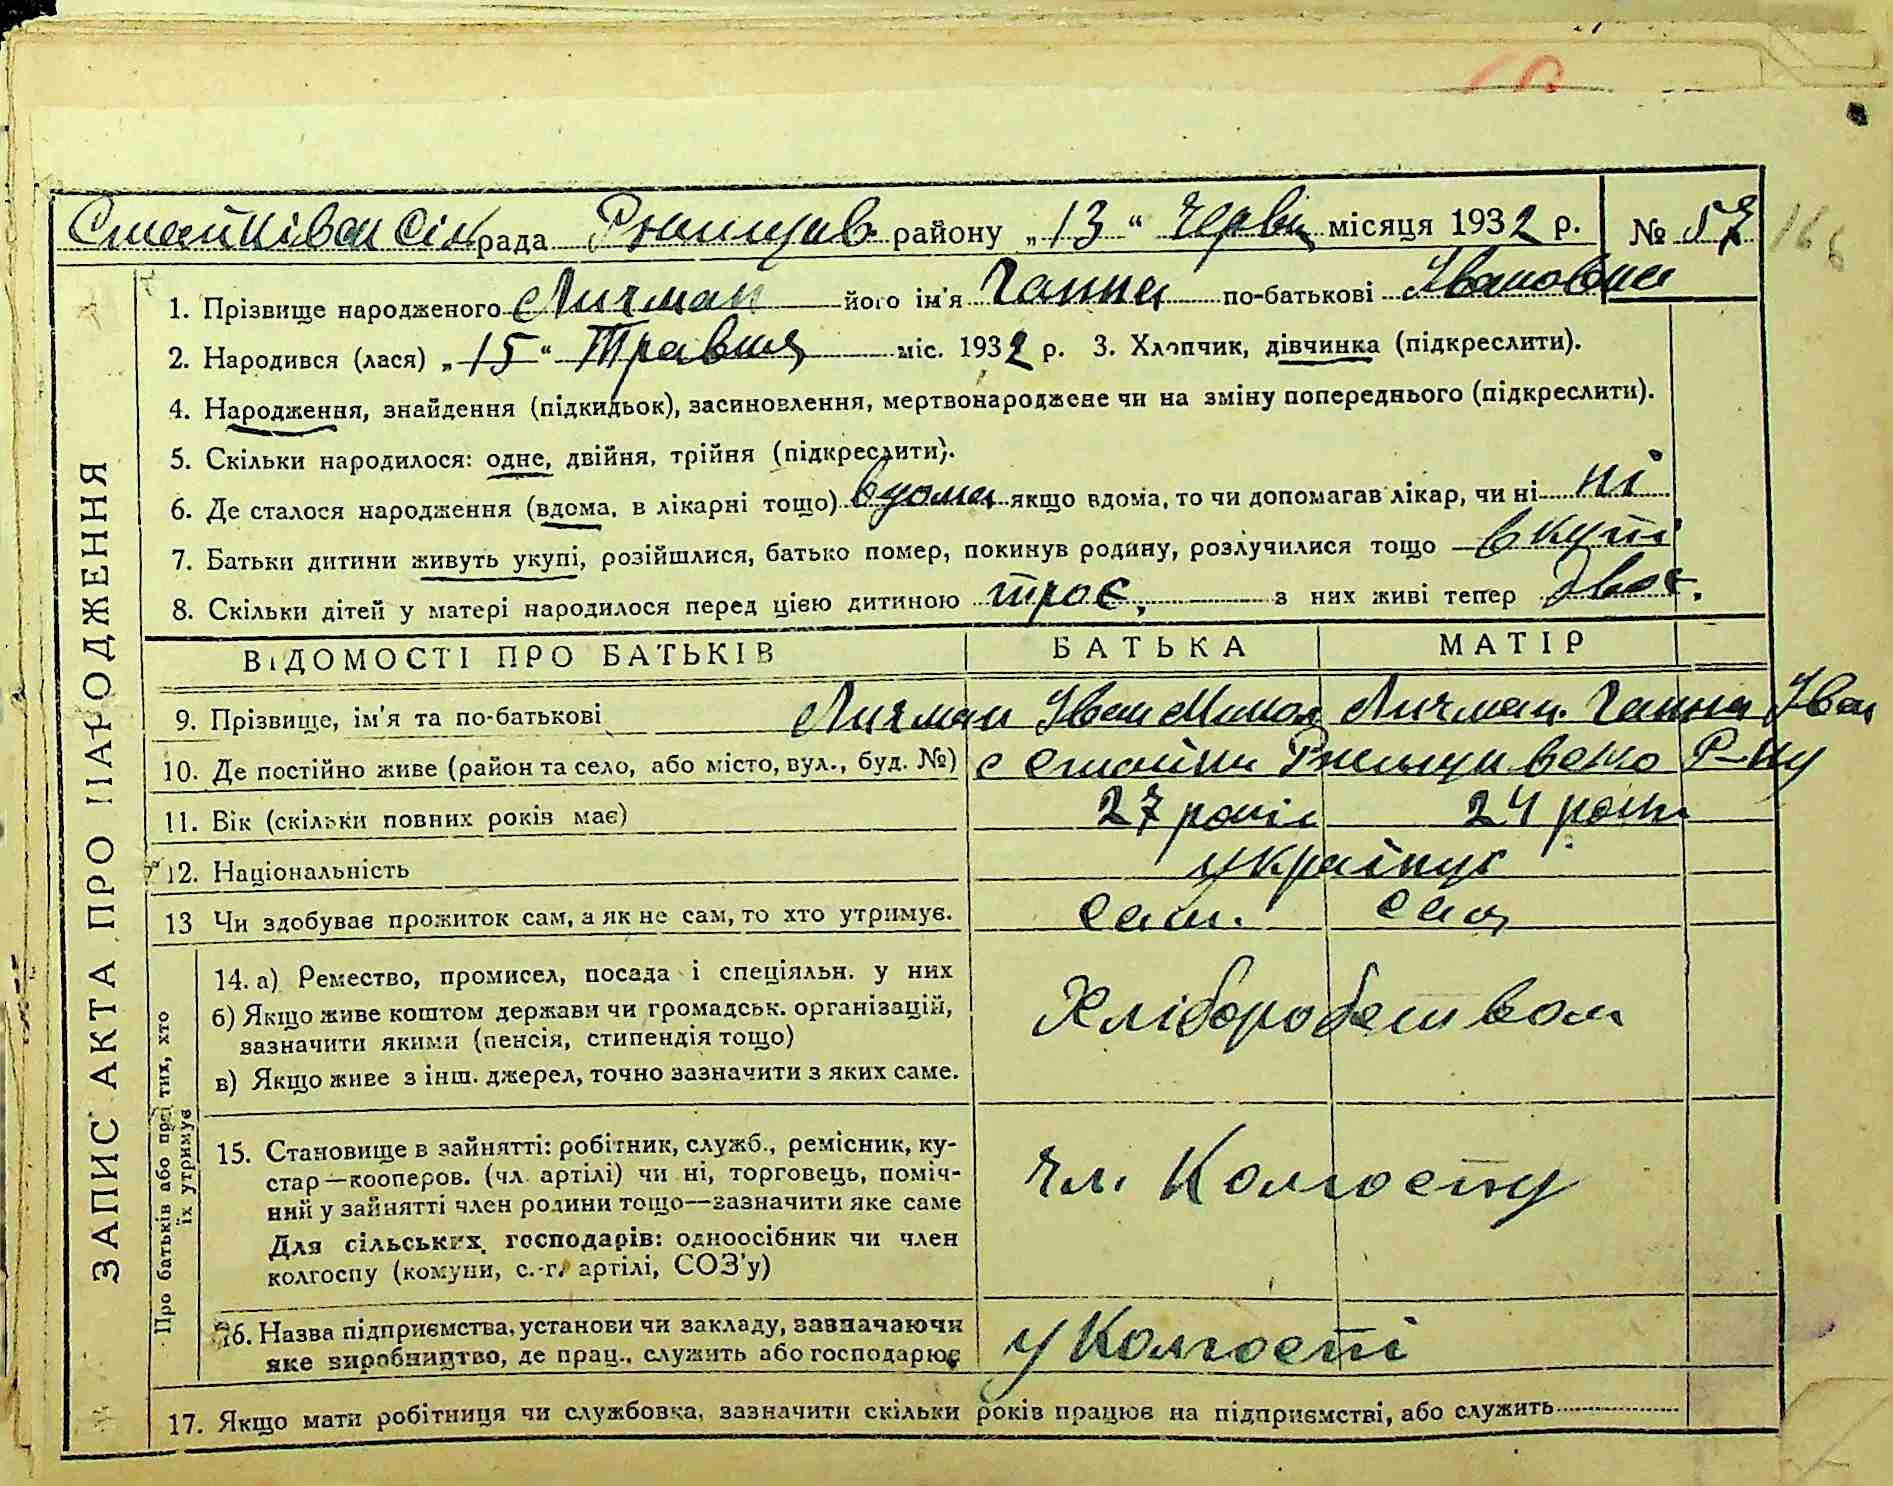 Стайківсь сільрада Ржищів району „13“ Червн місяця 1932 р. № 57
166
1. Прізвище народженого Личман його ім'я Ганна по-батькові Івановна
2. Народився (лася) „15“ Травня міс. 1932 р. 3. Хлопчик, дівчинка (підкреслити).
4. Народження, знайдення (підкидьок), засиновлення, мертвонароджене чи на зміну попереднього (підкреслити).
5. Скільки народилося: одне, двійня, трійня (підкреслити).
6. Де сталося народження (вдома, в лікарні тощо) вдома якщо вдома, то чи допомагав лікар, чи ні ні
7. Батьки дитини живуть укупі, розійшлися, батько помер, покинув родину, розлучилися тощо вкупі
8. Скільки дітей у матері народилося перед цією дитиною троє, з них живі тепер двоє.
ВІДОМОСТІ ПРО БАТЬКІВ БАТЬКА МАТІР
9. Прізвище, ім'я та по-батькові Личман Іван Микол Личман Ганна Іван
10. Де постійно живе (район та село, або місто, вул., буд. №) с Стайки Ржищивсько Р-ну
11. Вік (скільки повних років має) 27 років 24 роки
12. Національність українці
13 Чи здобуває прожиток сам, а як не сам, то хто утримує. сам. сам
14. а) Ремество, промисел, посада і спеціяльн. у них
б) Якщо живе коштом держави чи громадськ. організацій,
зазначити якими (пенсія, стипендія тощо)
Хліборобством
в) Якщо живе з інш. джерел, точно зазначити з яких саме.
15. Становище в зайнятті: робітник, служб., ремісник, ку-
стар—кооперов. (чл. артілі) чи ні, торговець, поміч-
ний у зайнятті член родини тощо—зазначити яке саме
чл. Колгоспу
Для сільських господарів: одноосібник чи член
колгоспу (комуни, с.-г. артілі, СОЗ'у)
16. Назва підприємства, установи чи закладу, зазначаючи
яке виробництво, де прац., служить або господарює
у Колгоспі
17. Якщо мати робітниця чи службовка, зазначити скільки років працює на підприємстві, або служить
ЗАПИС АКТА ПРО НАРОДЖЕННЯ
Про батьків або про тих, хто
їх утримує